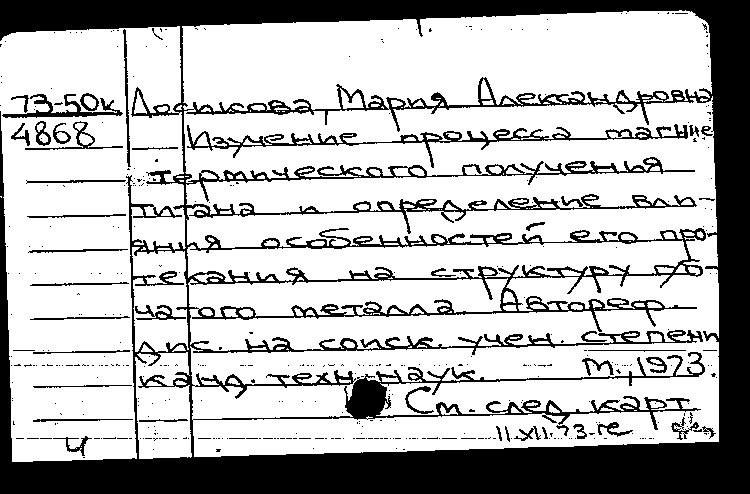 73-50к Лосикова, Мария Александровна
4868 Изучение процесса магние
термического полученья
титана и определение вли-
яния особенностей его про-
текания на структуру губ-
чатого металла. Автореф.
дис. на соиск. учен. степени
канд. техн. наук. М., 1973.
См. след. карт
11.XII.73.
Ч